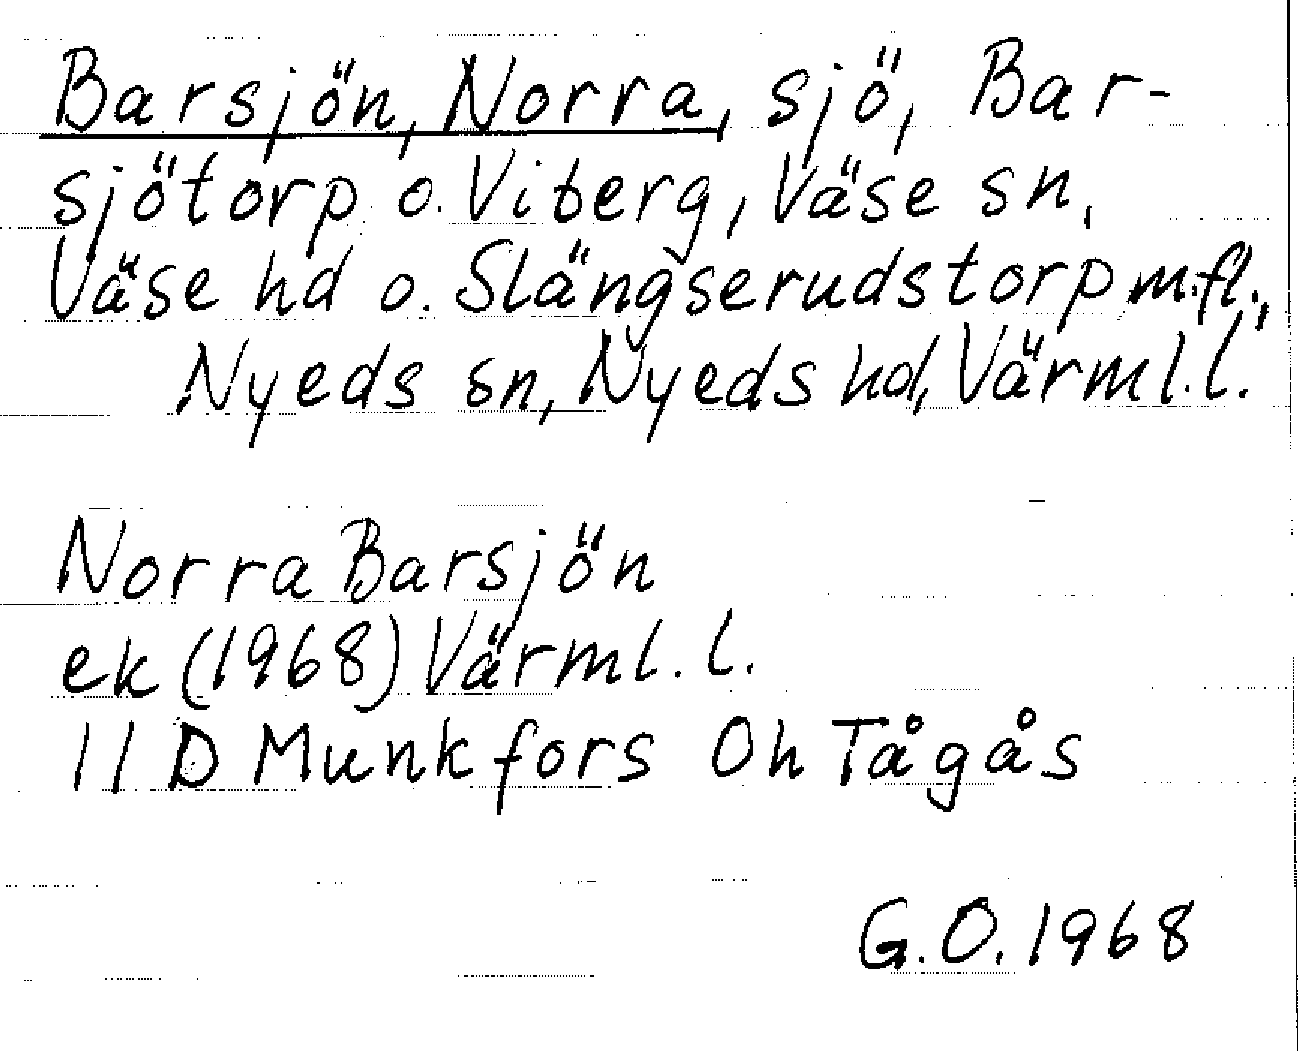 Barsjön, Norra, sjö, Bar-
sjötorp o. Viberg, Väse sn,
Väse hd o. Slängserudstorp m.fl.,
Nyeds sn, Nyeds hd, Värml.l.
Norra Barsjön
ek (1968) Värml. l.
11 D Munkfors Oh Tågås
G.O. 1968